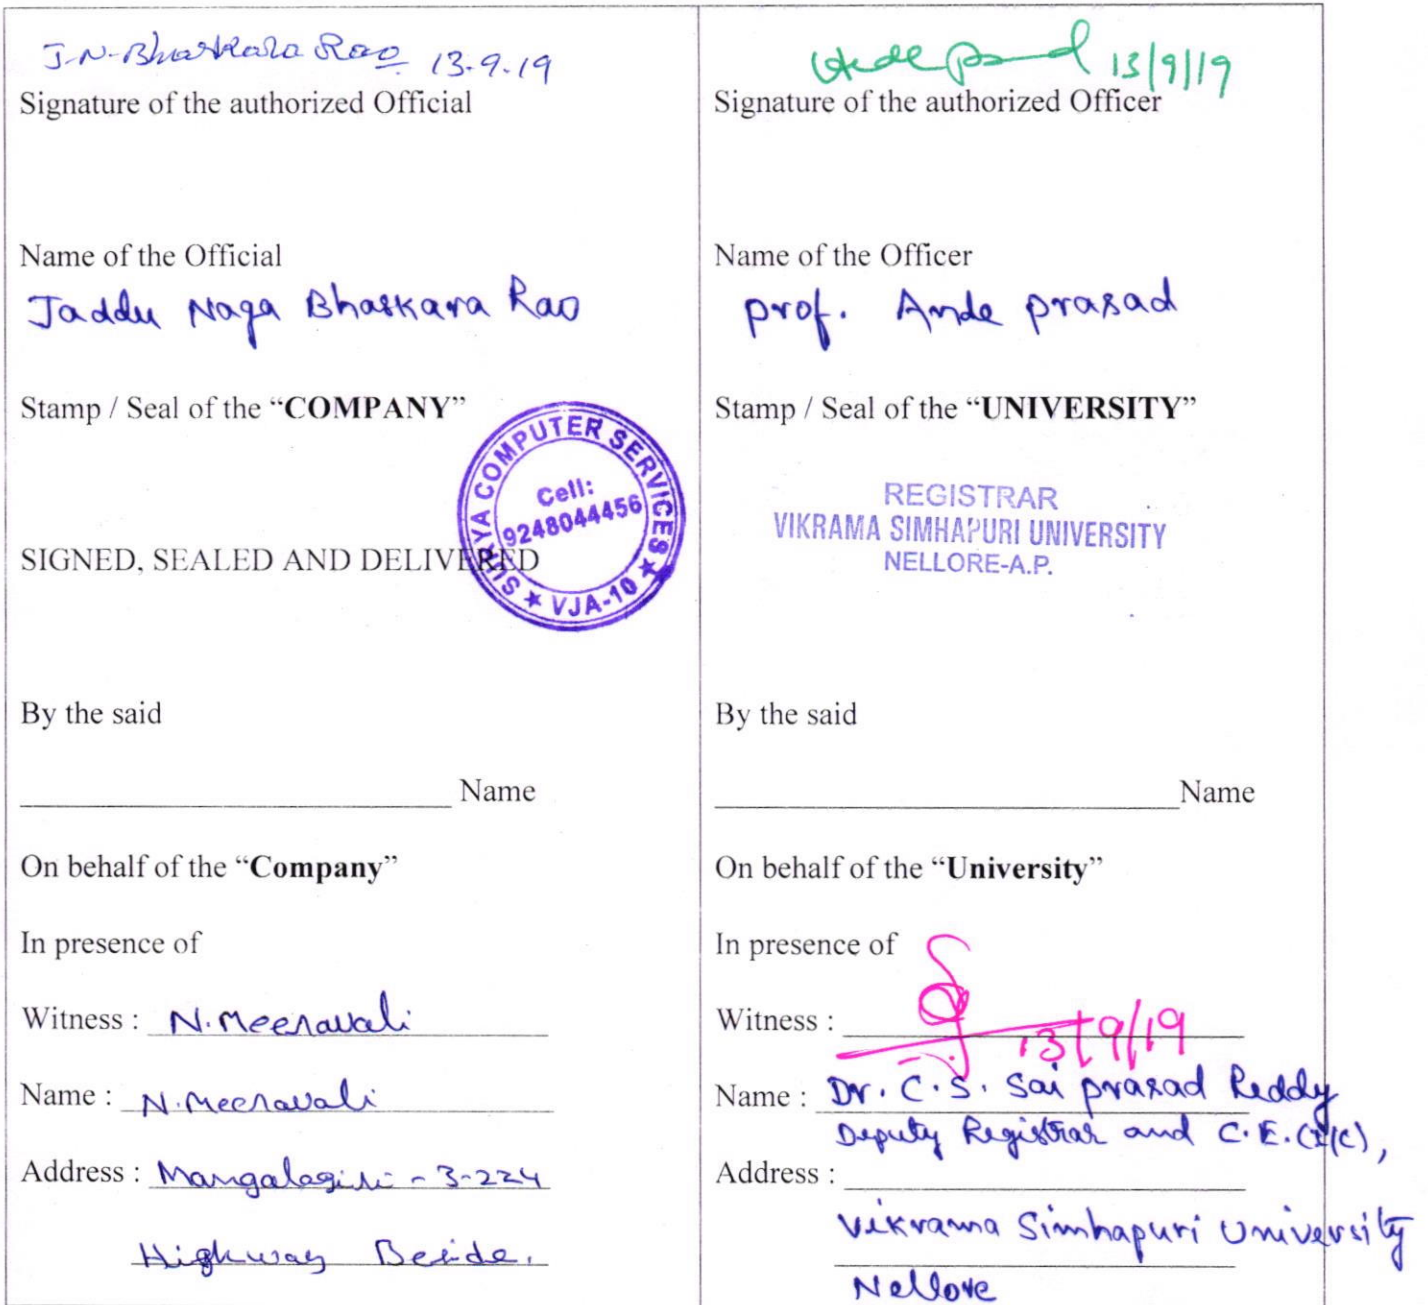 J.N. Bhaskara Rao 13.9.19
Signature of the authorized Official
Name of the Official
Jaddu Naga Bhaskara Rao
Stamp / Seal of the “COMPANY”
SURYA COMPUTER SERVICES
Cell:
9248044456
★ VJA-10 ★
SIGNED, SEALED AND DELIVERED
By the said
Name
On behalf of the “Company”
In presence of
Witness : N. Meeravali
Name : N. Meeravali
Address : Mangalagiri - 3-224
Highway Beside.
13/9/19
Signature of the authorized Officer
Name of the Officer
prof. Ande prasad
Stamp / Seal of the “UNIVERSITY”
REGISTRAR
VIKRAMA SIMHAPURI UNIVERSITY
NELLORE-A.P.
By the said
Name
On behalf of the “University”
In presence of
Witness : 13/9/19
Name : Dr. C.S. Sai prasad Reddy
Deputy Registrar and C.E.(I/C),
Address :
Vikrama Simhapuri University
Nellore